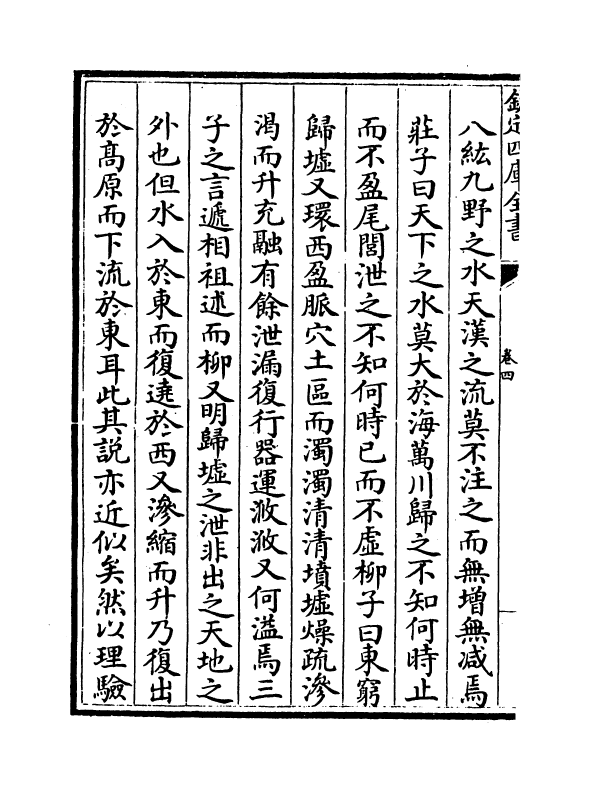 欽定四庫全書
卷四
八紘九野之水天漢之流莫不注之而無增無減焉
莊子曰天下之水莫大於海萬川歸之不知何時止
而不盈尾閭泄之不知何時已而不虛柳子曰東窮
歸墟又環西盈脈穴土區而濁濁清清墳墟燥疏滲
渴而升充融有餘泄漏復行器運浟浟又何溢焉三
子之言遞相祖述而柳又明歸墟之泄非出之天地之
外也但水入於東而復遶於西又滲縮而升乃復出
於髙原而下流於東耳此其説亦近似矣然以理驗